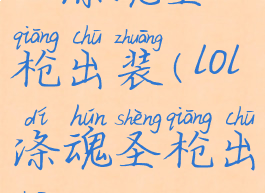 qiāng chū zhuāng
枪出装(lol
dí hún shèng qiāng chū
涤魂圣枪出